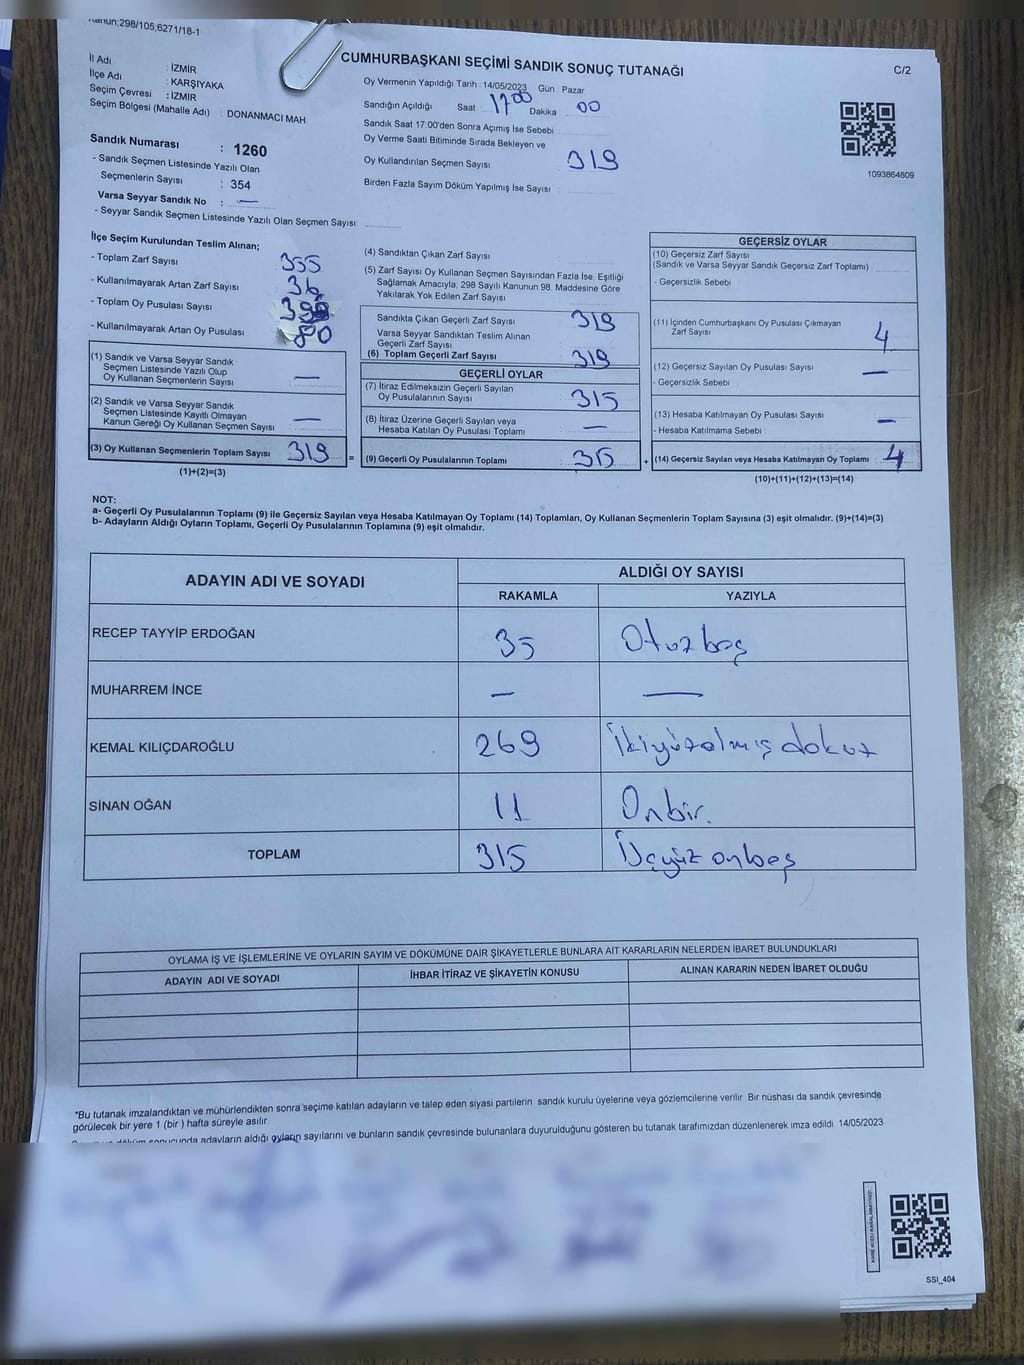 Kanun;298/105,6271/18-1
CUMHURBAŞKANI SEÇİMİ SANDIK SONUÇ TUTANAĞI
C/2
İl Adı : İZMİR
İlçe Adı : KARŞIYAKA
Seçim Çevresi : İZMİR
Seçim Bölgesi (Mahalle Adı) : DONANMACI MAH.
Sandık Numarası : 1260
- Sandık Seçmen Listesinde Yazılı Olan
Seçmenlerin Sayısı : 354
Varsa Seyyar Sandık No : —
- Seyyar Sandık Seçmen Listesinde Yazılı Olan Seçmen Sayısı:
Oy Vermenin Yapıldığı Tarih : 14/05/2023 Gün Pazar
Sandığın Açıldığı Saat 17 00 Dakika 00
Sandık Saat 17:00'den Sonra Açımış İse Sebebi
Oy Verme Saati Bitiminde Sırada Bekleyen ve
Oy Kullandırılan Seçmen Sayısı 319
Birden Fazla Sayım Döküm Yapılmış İse Sayısı
1093864809
İlçe Seçim Kurulundan Teslim Alınan;
- Toplam Zarf Sayısı 355
- Kullanılmayarak Artan Zarf Sayısı 36
- Toplam Oy Pusulası Sayısı
- Kullanılmayarak Artan Oy Pusulası 80
(1) Sandık ve Varsa Seyyar Sandık
Seçmen Listesinde Yazılı Olup
Oy Kullanan Seçmenlerin Sayısı —
(2) Sandık ve Varsa Seyyar Sandık
Seçmen Listesinde Kayıtlı Olmayan
Kanun Gereği Oy Kullanan Seçmen Sayısı —
(3) Oy Kullanan Seçmenlerin Toplam Sayısı 319
(1)+(2)=(3)
(4) Sandıktan Çıkan Zarf Sayısı
(5) Zarf Sayısı Oy Kullanan Seçmen Sayısından Fazla İse, Eşitliği
Sağlamak Amacıyla; 298 Sayılı Kanunun 98. Maddesine Göre
Yakılarak Yok Edilen Zarf Sayısı
Sandıkta Çıkan Geçerli Zarf Sayısı 319
Varsa Seyyar Sandıktan Teslim Alınan
Geçerli Zarf Sayısı
(6) Toplam Geçerli Zarf Sayısı 319
GEÇERLİ OYLAR
(7) İtiraz Edilmeksizin Geçerli Sayılan
Oy Pusulalarının Sayısı 315
(8) İtiraz Üzerine Geçerli Sayılan veya
Hesaba Katılan Oy Pusulası Toplamı —
= (9) Geçerli Oy Pusulalarının Toplamı 315
GEÇERSİZ OYLAR
(10) Geçersiz Zarf Sayısı
(Sandık ve Varsa Seyyar Sandık Geçersiz Zarf Toplamı)
- Geçersizlik Sebebi
(11) İçinden Cumhurbaşkanı Oy Pusulası Çıkmayan
Zarf Sayısı 4
(12) Geçersiz Sayılan Oy Pusulası Sayısı —
- Geçersizlik Sebebi
(13) Hesaba Katılmayan Oy Pusulası Sayısı —
- Hesaba Katılmama Sebebi
+ (14) Geçersiz Sayılan veya Hesaba Katılmayan Oy Toplamı 4
(10)+(11)+(12)+(13)=(14)
NOT:
a- Geçerli Oy Pusulalarının Toplamı (9) ile Geçersiz Sayılan veya Hesaba Katılmayan Oy Toplamı (14) Toplamları, Oy Kullanan Seçmenlerin Toplam Sayısına (3) eşit olmalıdır. (9)+(14)=(3)
b- Adayların Aldığı Oyların Toplamı, Geçerli Oy Pusulalarının Toplamına (9) eşit olmalıdır.
ADAYIN ADI VE SOYADI
ALDIĞI OY SAYISI
RAKAMLA YAZIYLA
RECEP TAYYİP ERDOĞAN 35 Otuzbeş
MUHARREM İNCE — —
KEMAL KILIÇDAROĞLU 269 İkiyüzalmışdokuz
SİNAN OĞAN 11 Onbir.
TOPLAM 315 Üçyüz onbeş
OYLAMA İŞ VE İŞLEMLERİNE VE OYLARIN SAYIM VE DÖKÜMÜNE DAİR ŞİKAYETLERLE BUNLARA AİT KARARLARIN NELERDEN İBARET BULUNDUKLARI
ADAYIN ADI VE SOYADI İHBAR İTİRAZ VE ŞİKAYETİN KONUSU ALINAN KARARIN NEDEN İBARET OLDUĞU
*Bu tutanak imzalandıktan ve mühürlendikten sonra seçime katılan adayların ve talep eden siyasi partilerin sandık kurulu üyelerine veya gözlemcilerine verilir. Bir nüshası da sandık çevresinde
görülecek bir yere 1 (bir) hafta süreyle asılır.
sonucunda adayların aldığı oyların sayılarını ve bunların sandık çevresinde bulunanlara duyurulduğunu gösteren bu tutanak tarafımızdan düzenlenerek imza edildi. 14/05/2023
SSI_404